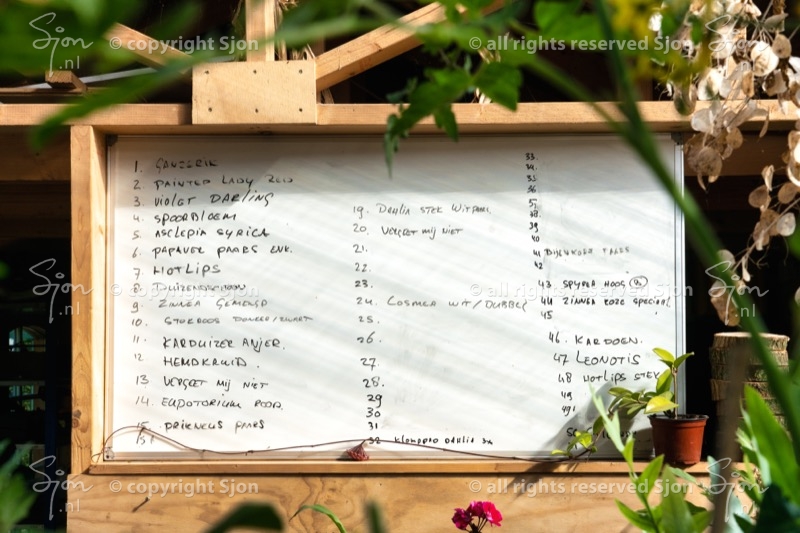 Sjon.nl © copyright Sjon © all rights reserved Sjon.nl
1. GANZERIK
2. PAINTED LADY ZEID
3. VIOLET DARLING
4. SPOORBLOEM
5. ASCLEPIA SYRICA
6. PAPAVER PAARS ENK.
7. HOTLIPS
8. DUIZENDSCHOON
9. ZINNEA GEMENGD
10. STOKROOS DONKER/ZWART
11. KARDUIZER ANJER.
12 HEMDKRUID.
13. VERGEET MIJ NIET
14. EUPOTORIUM ROOD.
15. PRIKNEUS PAARS
19. DAHLIA STEK WITPAARS
20. VERGEET MIJ NIET
21.
22.
23.
24. COSMEA WIT/DUBBEL
25.
26.
27.
28.
29
30
31
32 KLOMPRO DAHLIA 3x
33.
34.
35.
36
37.
38.
39
40
41 BIJENKORF PAARS
42
43 SPYREA HOOG
44 ZINNEA ROZE SPECIAAL
45
46. KARDOEN.
47 LEONOTIS
48 HOTLIPS STEK
49.
Sjon.nl © copyright Sjon © all rights reserved Sjon.nl
Sjon.nl © copyright Sjon © all rights reserved Sjon.nl